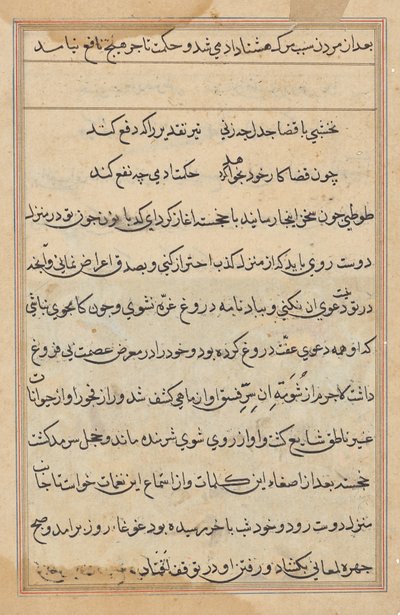 بعد از مردن سبب مرک هشتاد ادمی شد و حکمت تاجر هیچ نافع نیامد
نخشبی با قضا جدل چه زنی تیر تقدیر را که دفع کند
چون قضا کار خود بخواهد حکمت ادمی چه نفع کند
طوطی چون سخن اینجا رسانید با خجسته اغاز کرد ای کدبانو چون تو در منزل
دوست روی باید که از منزل کذب احتراز کنی و بصدق اعراض نمایی و انچه
در تو نیست دعوی ان نکنی و بباد نامه دروغ غره نشوی و چون کامجوی نباشی
که او همه دعوی عفت دروغ کرده بود و خود را در معرض عصمت بی فروغ
داشت لاجرم از شومیة ان سر فسق او از ماهی کشف شد و راز فجور او از حیوانات
غیر ناطق شایع کشت و او از روی شوی شرمنده ماند و خجل سرمد کشت
خجسته بعد از اصغاء این کلمات و از استماع این نغمات خواست تا جانب
منزل دوست رود و خود شب باخر رسیده بود غوغاء روز برامد و صبح
چهره لمعانی بکشاد و رفتن او در توقف افتاد